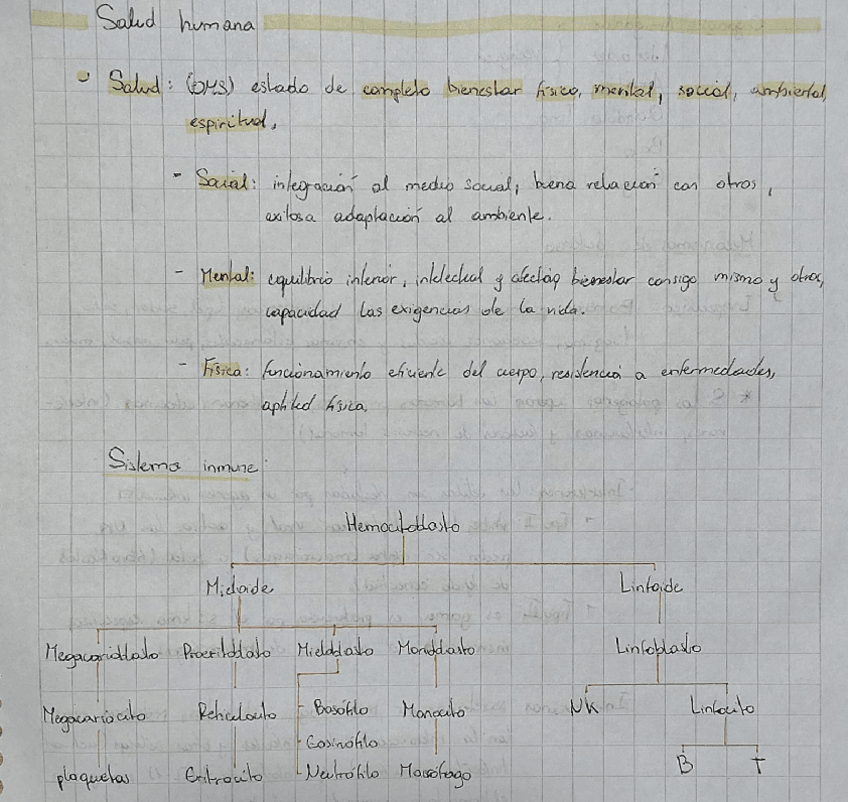 Salud humana
Salud: (OMS) estado de completo bienestar físico, mental, social, ambiental,
espiritual.
- Social: integración al medio social, buena relación con otros,
exitosa adaptación al ambiente.
- Mental: equilibrio interior, intelectual y afectivo bienestar consigo mismo y otros,
capacidad las exigencias de la vida.
- Física: funcionamiento eficiente del cuerpo, resistencia a enfermedades,
aptitud física.
Sistema inmune:
Hemocitoblasto
Mieloide Linfoide
Megacarioblasto Proeritoblasto Mieloblasto Monoblasto Linfoblasto
Megacariocito Reticulocito - Basófilo Monocito NK Linfocito
- Eosinófilo
plaquetas Eritrocito - Neutrófilo Macrófago B T